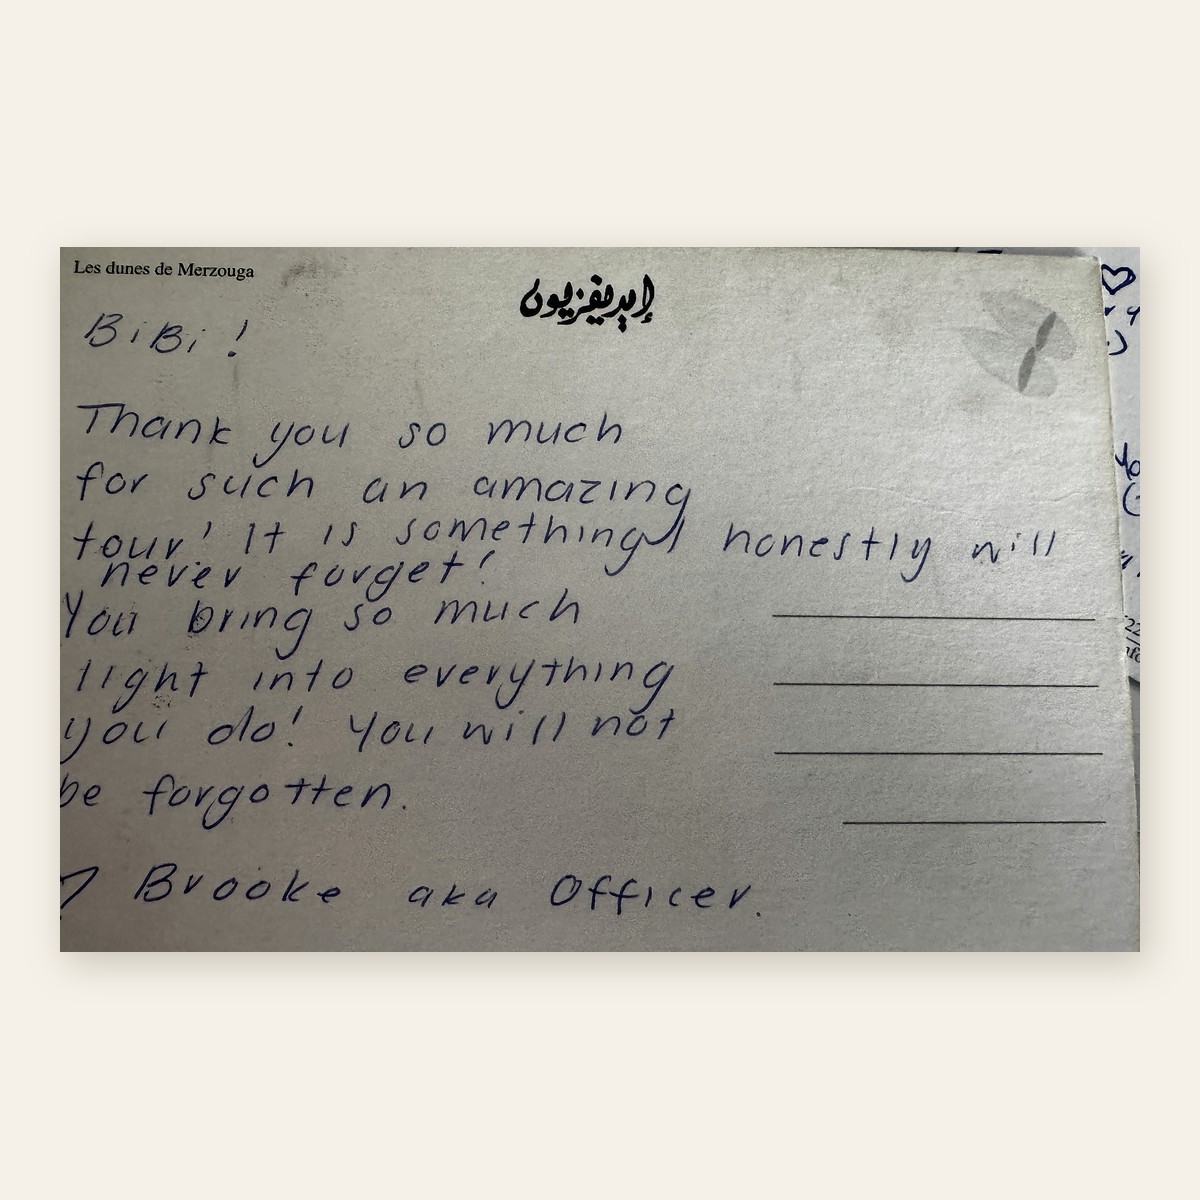 Les dunes de Merzouga
إيديفزيون
BiBi !
Thank you so much
for such an amazing
tour! It is something I honestly will
never forget!
You bring so much
light into everything
you do! You will not
be forgotten.
Brooke aka Officer.